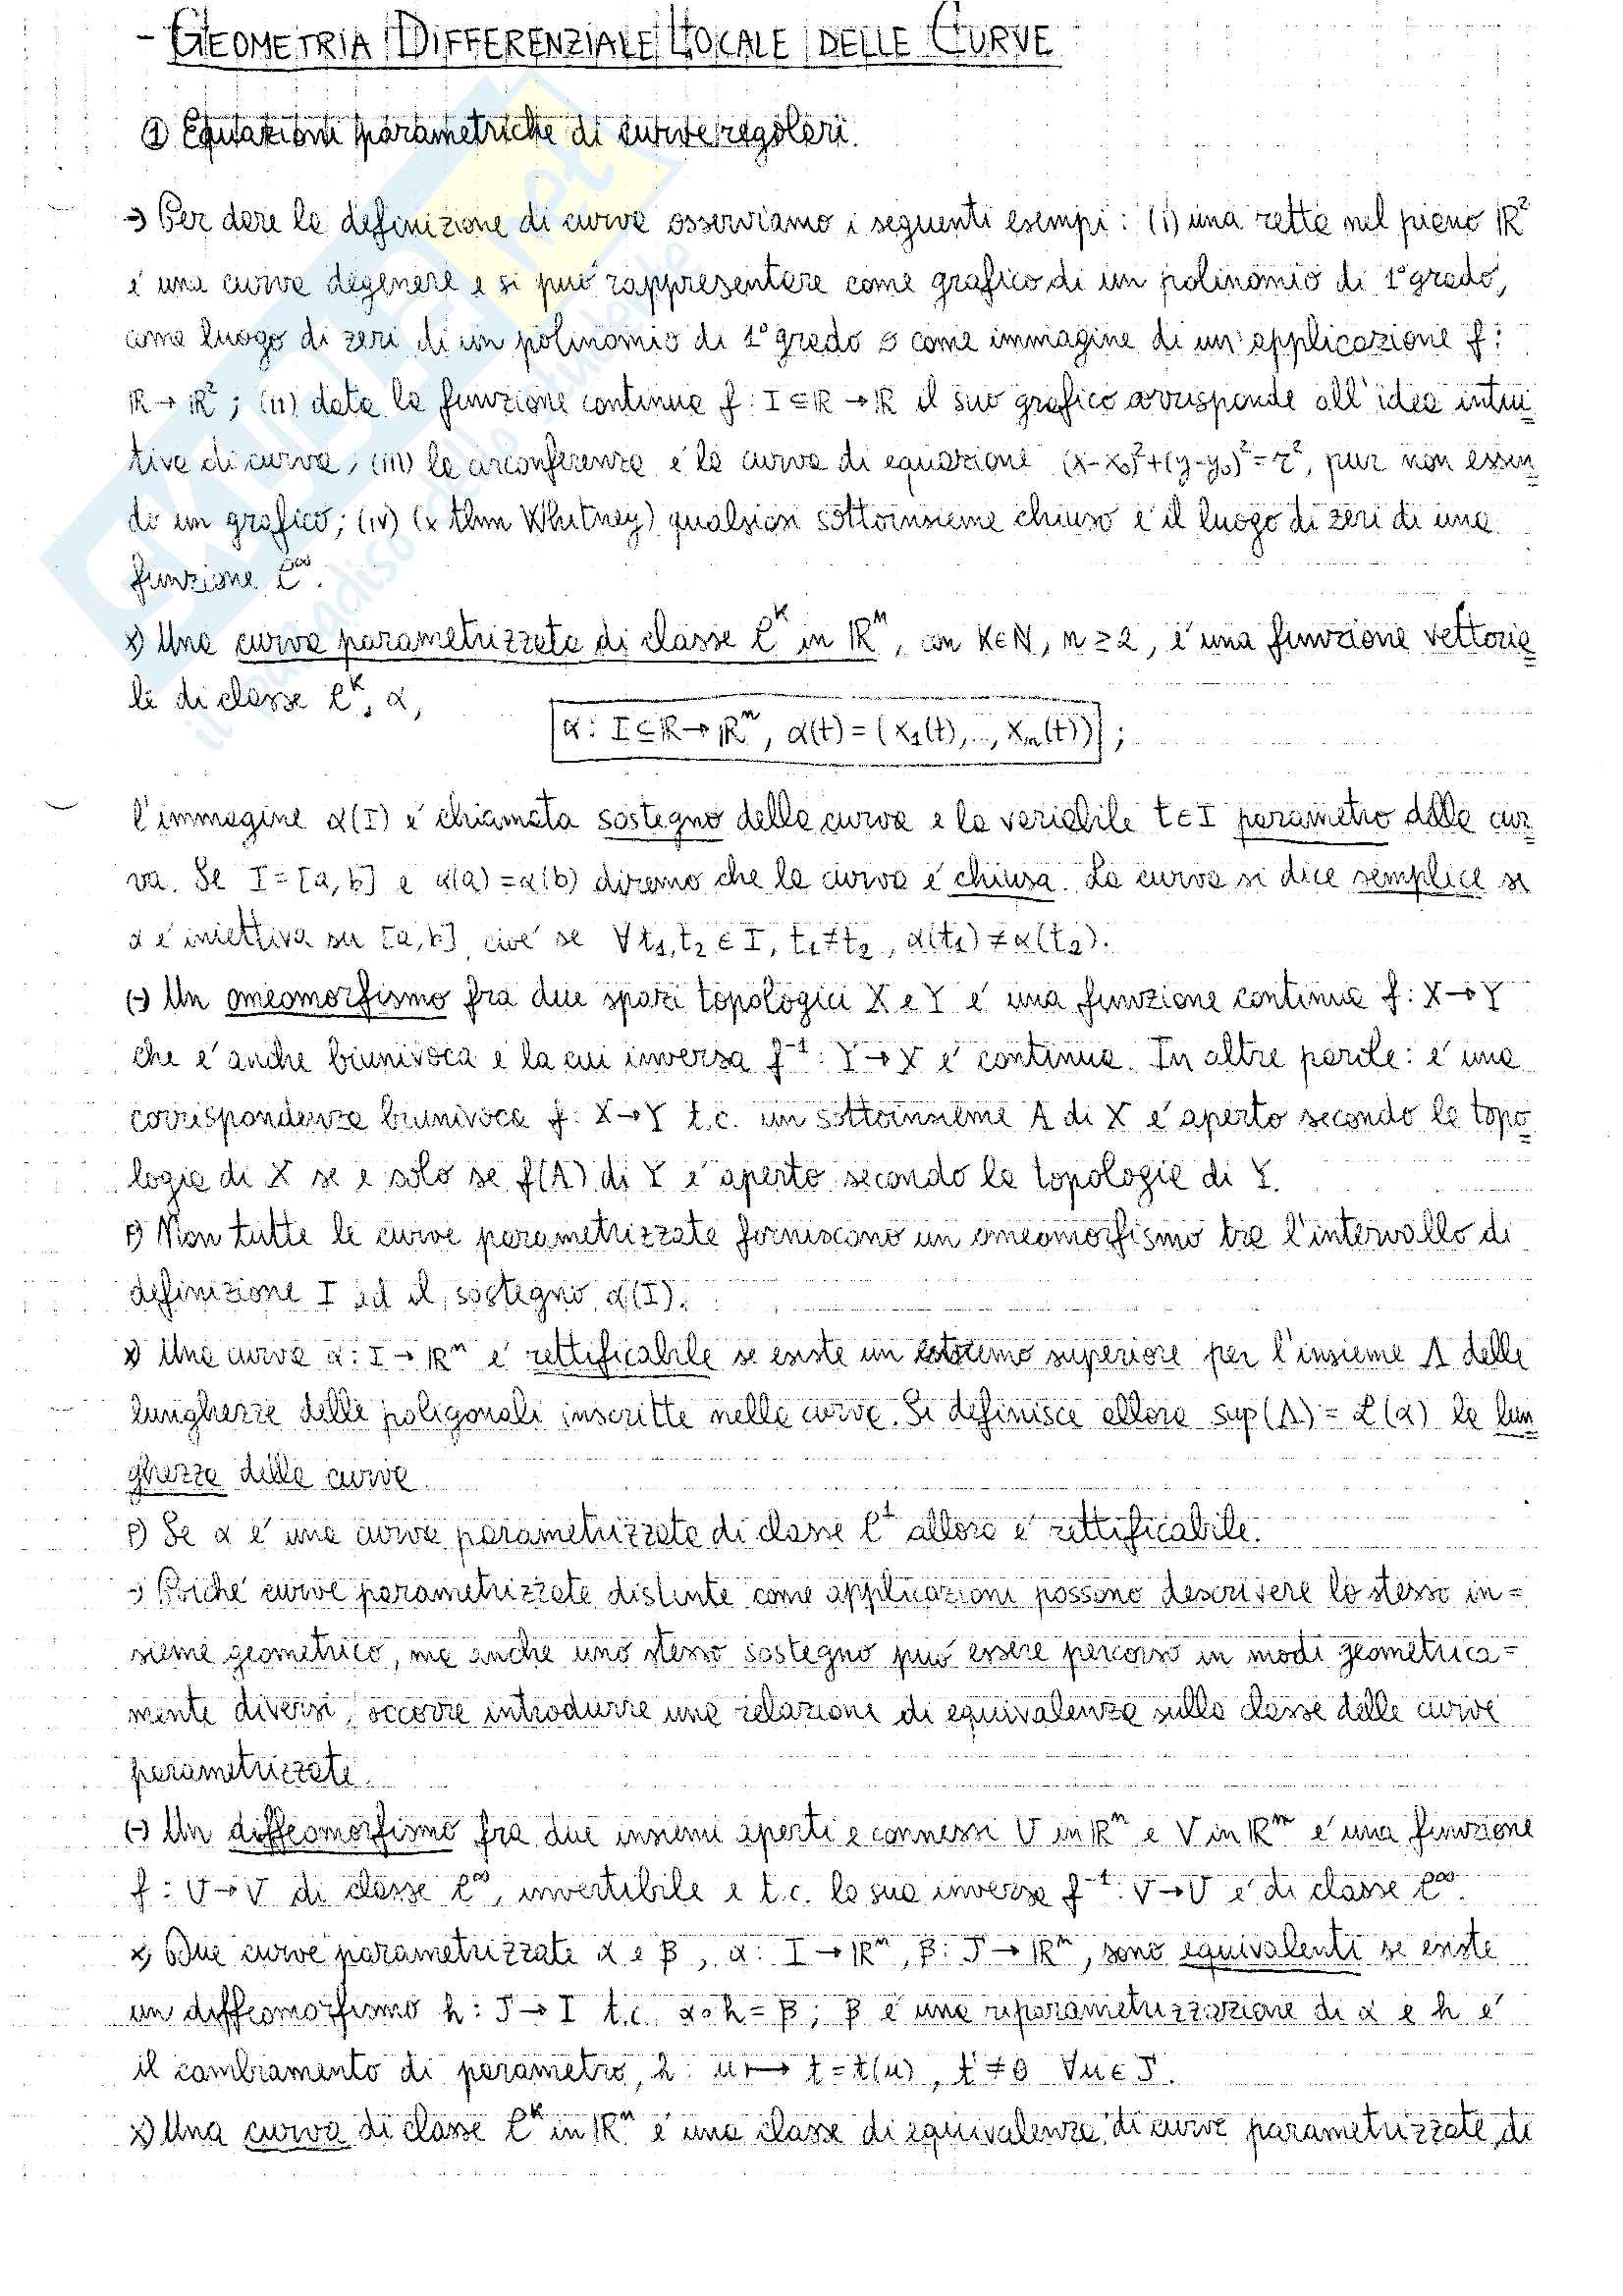 - GEOMETRIA DIFFERENZIALE LOCALE DELLE CURVE
① Equazioni parametriche di curve regolari.
→ Per dare la definizione di curva osserviamo i seguenti esempi: (i) una retta nel piano ℝ²
é una curva degenere e si puó rappresentare come grafico di un polinomio di 1° grado,
come luogo di zeri di un polinomio di 1° grado o come immagine di un'applicazione f:
ℝ → ℝ² ; (ii) data la funzione continua f: I ⊆ ℝ → ℝ il suo grafico corrisponde all'idea intui=
tiva di curva; (iii) la circonferenza é la curva di equazione (x-x₀)²+(y-y₀)²=r², pur non essen=
do un grafico; (iv) (x thm Whitney) qualsiasi sottoinsieme chiuso é il luogo di zeri di una
funzione C^∞.
x) Una curva parametrizzata di classe C^K in ℝⁿ, con K∈ℕ, n ≥ 2, é una funzione vettoria=
le di classe C^K, α,
α: I ⊆ ℝ → ℝⁿ, α(t) = (x₁(t),..., xₙ(t)) ;
l'immagine α(I) é chiamata sostegno della curva e la variabile t∈I parametro della cur=
va. Se I = [a, b] e α(a) = α(b) diremo che la curva é chiusa. La curva si dice semplice se
α é iniettiva su [a, b], cioé se ∀ t₁, t₂ ∈ I, t₁ ≠ t₂, α(t₁) ≠ α(t₂).
(→) Un omeomorfismo fra due spazi topologici X e Y é una funzione continua f: X → Y
che é anche biunivoca e la cui inversa f⁻¹: Y → X é continua. In altre parole: é una
corrispondenza biunivoca f: X → Y t.c. un sottoinsieme A di X é aperto secondo la topo=
logia di X se e solo se f(A) di Y é aperto secondo la topologia di Y.
P) Non tutte le curve parametrizzate forniscono un omeomorfismo tra l'intervallo di
definizione I ed il sostegno α(I).
x) Una curva α: I → ℝⁿ é rettificabile se esiste un estremo superiore per l'insieme Λ delle
lunghezze delle poligonali inscritte nella curva. Si definisce allora sup(Λ) = L(α) la lun=
ghezza della curva.
P) Se α é una curva parametrizzata di classe C¹ allora é rettificabile.
→ Poiché curve parametrizzate distinte come applicazioni possono descrivere lo stesso in=
sieme geometrico, ma anche uno stesso sostegno puó essere percorso in modi geometrica=
mente diversi, occorre introdurre una relazione di equivalenza sulla classe delle curve
parametrizzate.
(→) Un diffeomorfismo fra due insiemi aperti e connessi U in ℝⁿ e V in ℝᵐ é una funzione
f: U → V di classe C^∞, invertibile e t.c. la sua inversa f⁻¹: V → U é di classe C^∞.
x) Due curve parametrizzate α e β, α: I → ℝⁿ, β: J → ℝⁿ, sono equivalenti se esiste
un diffeomorfismo h: J → I t.c. α∘h = β; β é una riparametrizzazione di α e h é
il cambiamento di parametro, h: u ↦ t = t(u), t' ≠ 0 ∀u ∈ J.
x) Una curva di classe C^K in ℝⁿ é una classe di equivalenza di curve parametrizzate di